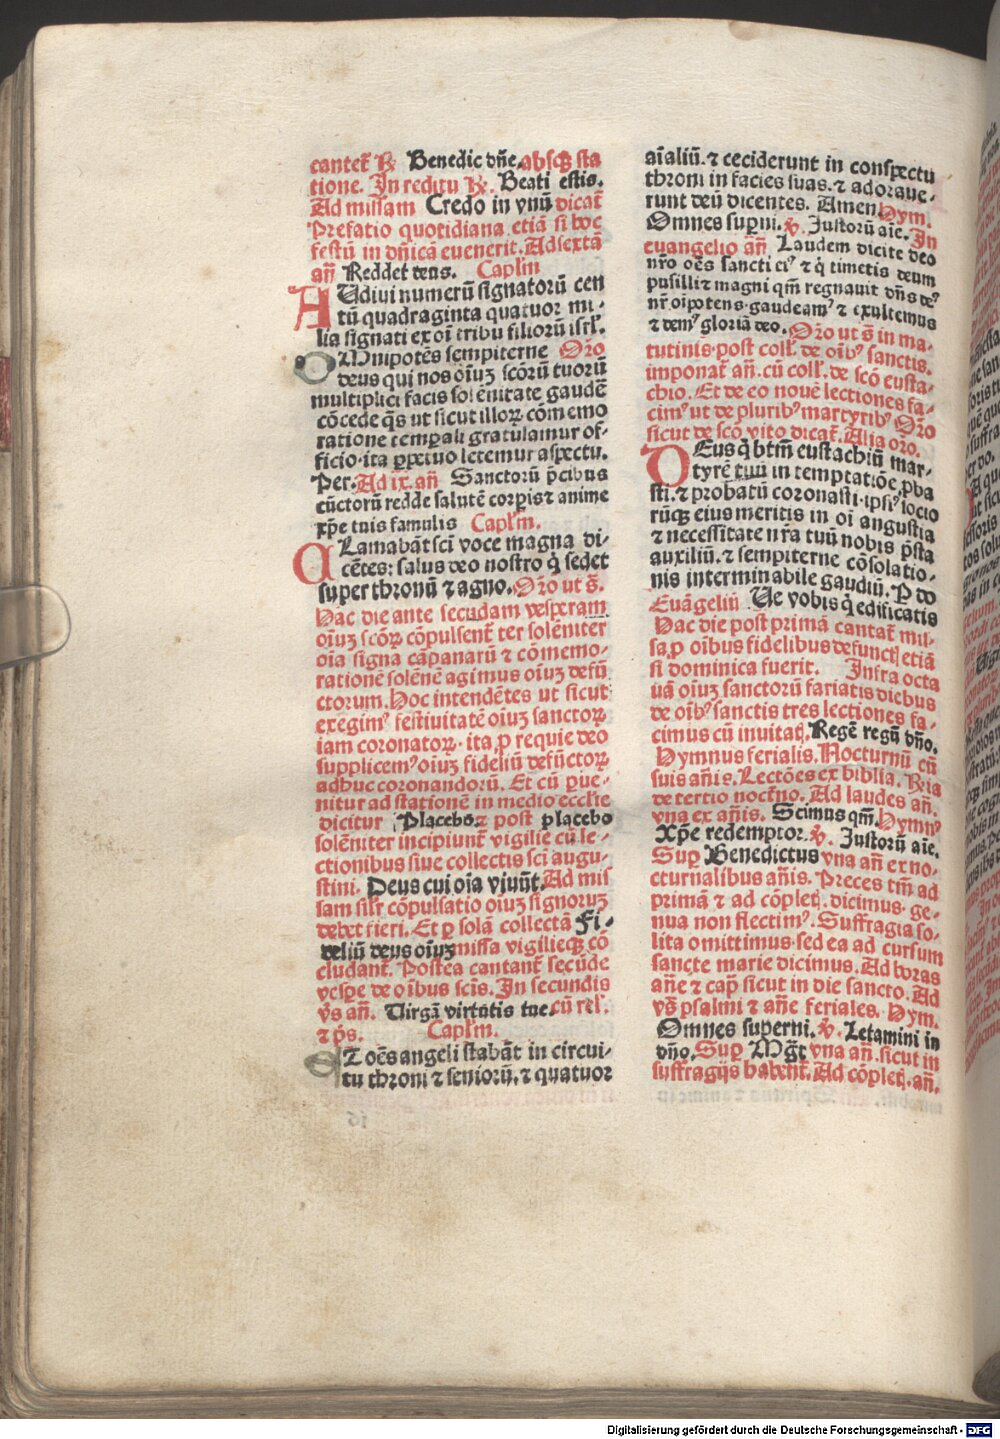 cantet̄ ℟ Benedic dñe. absqꝫ sta
tione. In reditu ℟. Beati estis.
Ad missam Credo in vnū dicat̄
Prefatio quotidiana etiā si hoc
festū in dñica euenerit. Ad sextā
añ Reddet deus. Caplm̄
AUdiui numerū signatorū cen
tū quadraginta quatuor mi-
lia signati ex oī tribu filiorū isrl'.
OMnipotēs sempiterne Oro
deus qui nos oīuꝫ scōrū tuorū
multiplici facis solēnitate gaudē
cōcede q̄s ut sicut illoꝝ cōmemo
ratione temp̄ali gratulamur of-
ficio. ita ꝑpetuo letemur aspectu.
Per. Ad ix. añ Sanctorū p̄cibus
cūctorū redde salutē corpis ⁊ anime
xp̄e tuis famulis Caplm̄.
CLamabāt sci voce magna di-
cētes: salus deo nostro q̇ sedet
super thronū ⁊ agno. Oro ut s̄.
Hac die ante secūdam vesperam
oīuꝫ scōꝝ cōpulsent̄ ter solēniter
oīa signa cāpanarū ⁊ cōmemo-
rationē solēnē agimus oīuꝫ defū
ctorum. Hoc intendētes ut sicut
exegimꝰ festiuitatē oīuꝫ sanctoꝝ
iam coronatoꝝ. ita ꝓ requie deo
supplicemꝰ oīuꝫ fideliū defūctoꝝ
adhuc coronandorū. Et cū ꝑue-
nitur ad stationē in medio ecclie
dicitur Placebo. ⁊ post placebo
solēniter incipiunt̄ vigilie cū le-
ctionibus siue collectis sci augu-
stini. Deus cui oīa viuūt. Ad mis
sam silr cōpulsatio oīuꝫ signoruꝫ
debet fieri. Et ꝑ solā collectā Fi-
deliū deus oīuꝫ missa vigilieqꝫ cō
cludant̄. Postea cantant̄ secūde
vesp̄e de oībus scis. In secundis
v̄s añ. Uirgā virtutis tue. cū rel'.
⁊ p̄s. Caplm̄.
ET oēs angeli stabāt in circui-
tu throni ⁊ seniorū. ⁊ quatuor
aīaliū. ⁊ ceciderunt in conspectu
throni in facies suas. ⁊ adoraue-
runt deū dicentes. Amen Hym.
Omnes sup̄ni. ℣. Justorū aīe. In
euangelio añ Laudem dicite deo
nr̄o oēs sancti eiꝰ ⁊ q̇ timetis deum
pusilli ⁊ magni qm̄ regnauit dn̄s deꝰ
nr̄ oīpotens. gaudeamꝰ ⁊ exultemus
⁊ demꝰ gloriā deo. Oro ut s̄ in ma-
tutinis. post coll'. de oībꝰ sanctis.
imponat̄ añ. cū coll'. de scō eusta-
chio. Et de eo nouē lectiones fa-
cimꝰ ut de pluribꝰ martyribꝰ Oro
sicut de scō vito dicat̄. Alia oro.
DEus q̇ btm̄ eustachiū mar-
tyrē tuū in temptatiōe ꝓba
sti. ⁊ probatū coronasti. ipsiꝰ socio
rūqꝫ eius meritis in oī angustia
⁊ necessitate nr̄a tuū nobis p̄sta
auxiliū. ⁊ sempiterne cōsolatio-
nis interminabile gaudiū. P do
Euāgeliū Ue vobis q̇ edificatis
Hac die post primā cantat̄ mis-
sa ꝓ oībus fidelibus defunct̄. etiā
si dominica fuerit. Infra octa
uā oīuꝫ sanctorū fariatis diebus
de oībꝰ sanctis tres lectiones fa-
cimus cū inuitaṫ. Regē regū dño.
Hymnus ferialis. Nocturnū cū
suis añis. Lectōes ex biblia. ℟ria
de tertio noct̄no. Ad laudes añ.
vna ex añis. Scimus qm̄. Hymnꝰ
Xp̄e redemptor. ℣. Justorū aīe.
Sup̄ Benedictus vna añ ex no-
cturnalibus añis. Preces tm̄ ad
primā ⁊ ad cōpleṫ. dicimus. ge-
nua non flectimꝰ. Suffragia so-
lita omittimus. sed ea ad cursum
sancte marie dicimus. Ad horas
añe ⁊ cap̄ sicut in die sancto. Ad
v̄s psalmi ⁊ añe feriales. Hym.
Omnes superni. ℣. Letamini in
dño. Sup̄ Mḡt vna añ. sicut in
suffragijs habent̄. Ad cōpleṫ. añ.
Digitalisierung gefördert durch die Deutsche Forschungsgemeinschaft - DFG